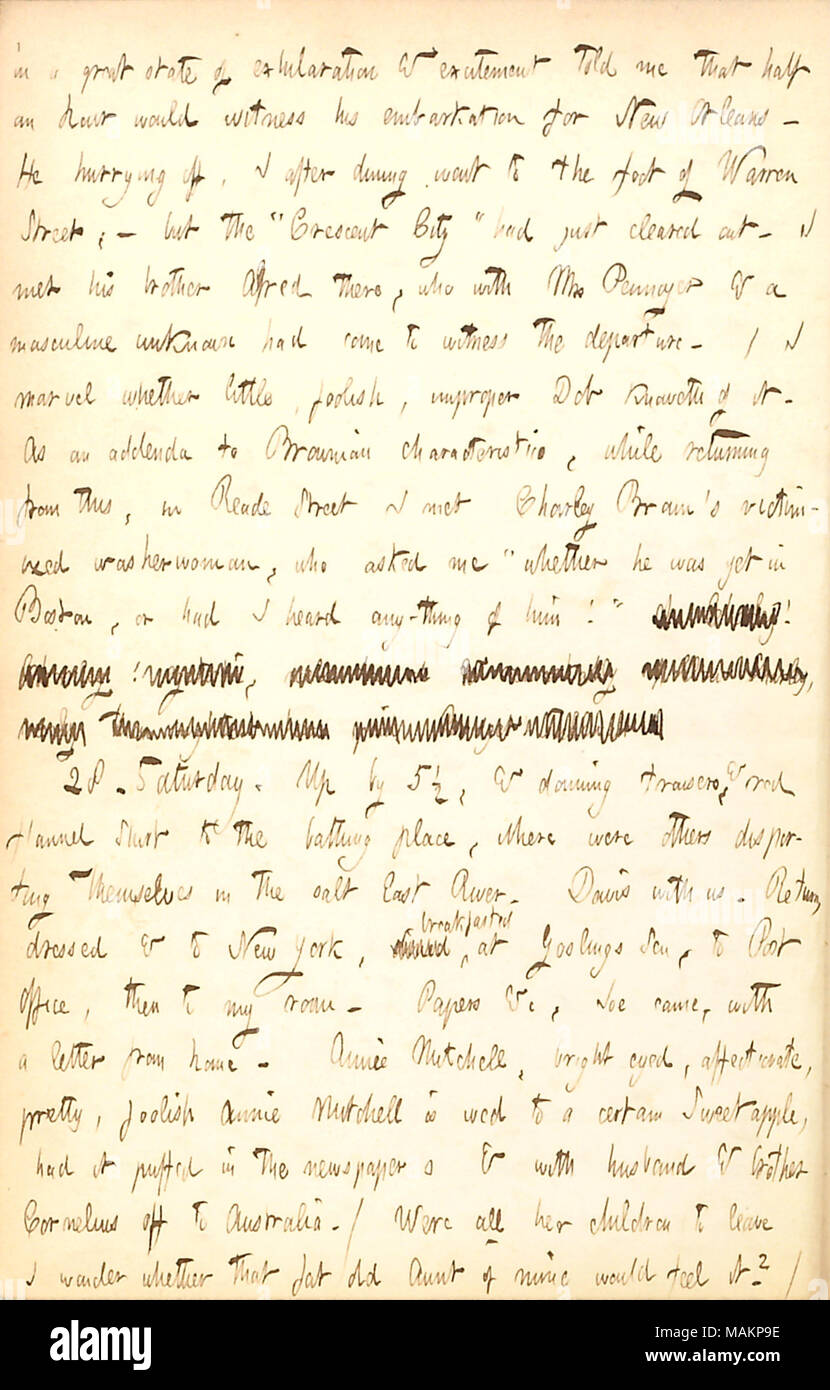 in a great state of exhilaration & excitement told me that half
an hour would witness his embarkation for New Orleans –
He hurrying off, I after dining went to the foot of Warren
Street; – but the "Crescent City" had just cleared out – I
met his brother Alfred there, who with Mrs Pennoyer & a
masculine unknown had come to witness the departure – / I
marvel whether little, foolish, improper Dob knoweth of it –
As an addenda to Brownian characteristics, while returning
from this, in Reade Street I met Charley Brown's victim-
ized washerwoman, who asked me "whether he was yet in
Boston, or had I heard any-thing of him!"
28. Saturday. Up by 5½, & donning trousers, & red
flannel shirt to the bathing place, where were others dispor-
ting themselves in the salt East River. Davis with us. Return,
dressed & to New York, breakfasted, at Goslings Den, to Post
Office, then to my room – Papers &c, Joe came, with
a letter from home – Annie Mitchell, bright eyed, affectionate,
pretty, foolish Annie Mitchell is wed to a certain Sweetapple,
had it puffed in the newspapers & with husband & brother
Cornelius off to Australia. / Were all her children to leave
I wonder whether that fat old Aunt of mine would feel it? /
alamy
Image ID: MAKP9E
www.alamy.com